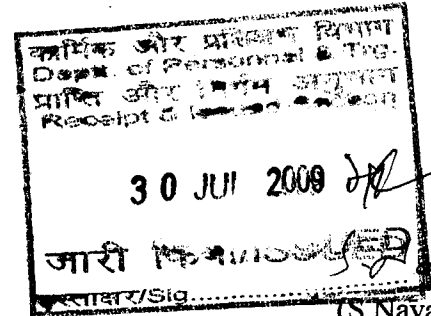 कार्मिक और प्रशिक्षण विभाग
Deptt. of Personnel & Trg.
प्राप्ति और निर्गम अनुभाग
Receipt & Section
30 JUL 2009
जारी ISSUED
हस्ताक्षर/Sig..................
(S Naya